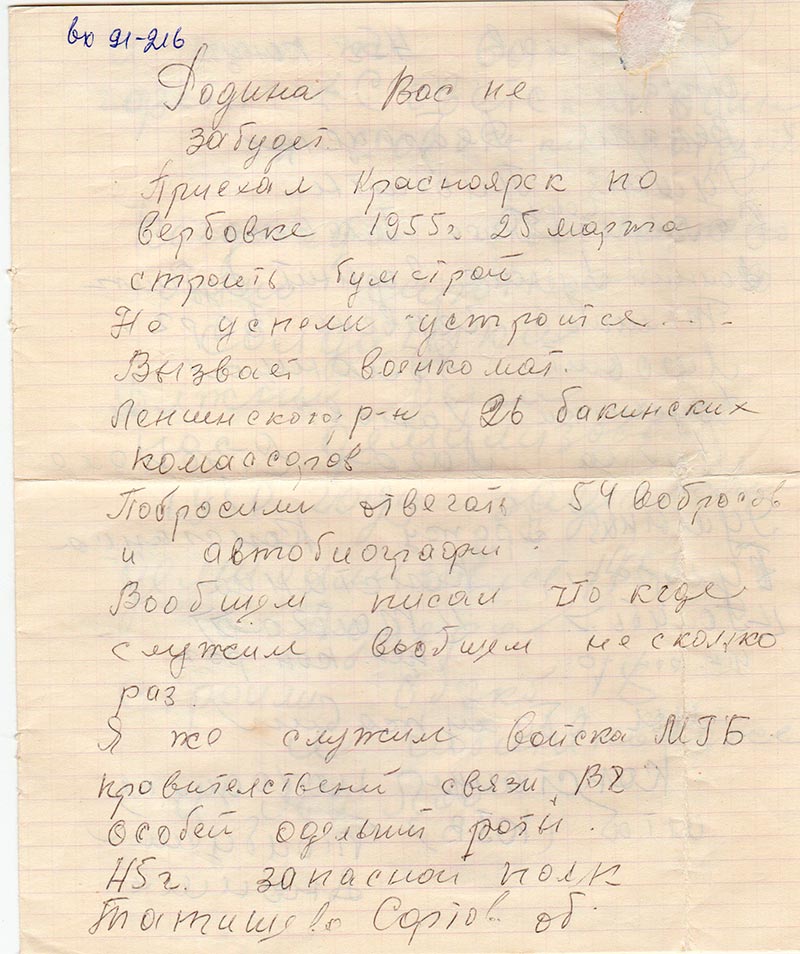 вх 91-216
Родина Вас не
забудет.
Приехал Красноярск по
вербовке 1955г. 25 марта
строить бумстрой
Но успели устроится...-
Вызвает военкомат.
Ленинского р-н 26 бакинских
комассаров
Побросили отвечать 54 вобросов
и автобиографи.
Вообщем писал что кгде
служил вьобщем несколко
раз.
Я жо служил войска МГБ
правителствений связи, ВЧ
особей одельний роты.
45г. запасной полк
Татищево Сартов. об.